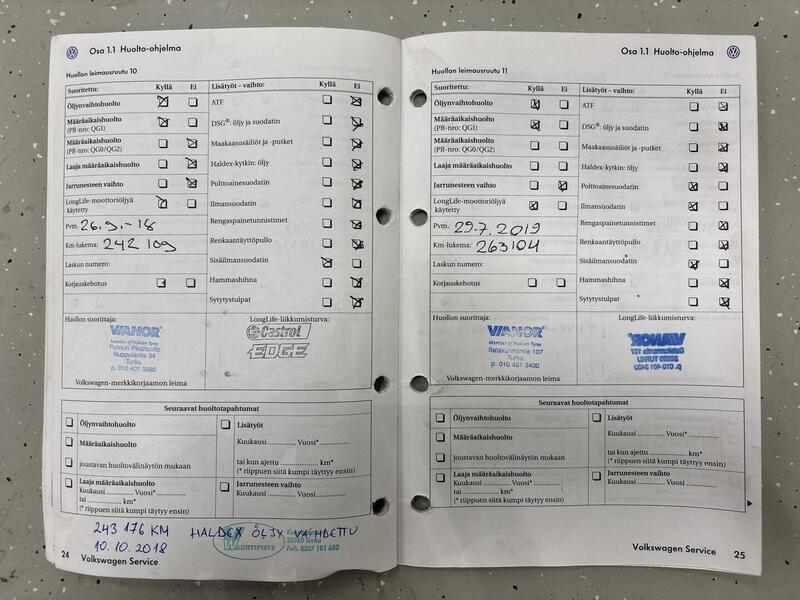 Osa 1.1 Huolto-ohjelma
Huollon leimausruutu 10
Suoritettu: Kyllä Ei
Öljynvaihtohuolto
Määräaikaishuolto
(PR-nro: QGI)
Määräaikaishuolto
(PR-nro: QG0/QG2)
Laaja määräaikaishuolto
Jarrunesteen vaihto
LongLife-moottoriöljyä
käytetty
Pvm. 26.9.-18
Km-lukema: 242 109
Laskun numero:
Korjauskehotus
Lisätyöt – vaihto: Kyllä Ei
ATF
DSG®: öljy ja suodatin
Maakaasusäiliöt ja -putket
Haldex-kytkin: öljy
Polttoainesuodatin
Ilmansuodatin
Rengaspainetunnistimet
Renkaantäyttöpullo
Sisäilmansuodatin
Hammashihna
Sytytystulpat
Huollon suorittaja:
VIANOR
Member of Nokian Tyres
Puiston Pikahuolto
Nuppulantie 34
Turku
p. 010 401 3980
Volkswagen-merkkikorjaamon leima
LongLife-liikkumisturva:
Castrol
EDGE
Seuraavat huoltotapahtumat
Öljynvaihtohuolto
Määräaikaishuolto
joustavan huoltovälinäytön mukaan
Laaja määräaikaishuolto
Kuukausi ............. Vuosi* .............
tai ............. km*
(* riippuen siitä kumpi täyttyy ensin)
Lisätyöt
Kuukausi ............. Vuosi* .............
tai kun ajettu ............. km*
(* riippuen siitä kumpi täyttyy ensin)
Jarrunesteen vaihto
Kuukausi ............. Vuosi .............
243 176 KM HALDEX ÖLJY VAIHDETTU
10.10.2018
VAUHTIPISTE
20320 Turku
Puh. 0207 181 680
24 Volkswagen Service
Osa 1.1 Huolto-ohjelma
Huollon leimausruutu 11
Suoritettu: Kyllä Ei
Öljynvaihtohuolto
Määräaikaishuolto
(PR-nro: QGI)
Määräaikaishuolto
(PR-nro: QG0/QG2)
Laaja määräaikaishuolto
Jarrunesteen vaihto
LongLife-moottoriöljyä
käytetty
Pvm. 29.7.2019
Km-lukema: 263104
Laskun numero:
Korjauskehotus
Lisätyöt – vaihto: Kyllä Ei
ATF
DSG®: öljy ja suodatin
Maakaasusäiliöt ja -putket
Haldex-kytkin: öljy
Polttoainesuodatin
Ilmansuodatin
Rengaspainetunnistimet
Renkaantäyttöpullo
Sisäilmansuodatin
Hammashihna
Sytytystulpat
Huollon suorittaja:
VIANOR
Member of Nokian Tyres
Satakunnantie 107
Turku
p. 010 401 3400
Volkswagen-merkkikorjaamon leima
LongLife-liikkumisturva:
VIANOR
Seuraavat huoltotapahtumat
Öljynvaihtohuolto
Määräaikaishuolto
joustavan huoltovälinäytön mukaan
Laaja määräaikaishuolto
Kuukausi ............. Vuosi* .............
tai ............. km*
(* riippuen siitä kumpi täyttyy ensin)
Lisätyöt
Kuukausi ............. Vuosi* .............
tai kun ajettu ............. km*
(* riippuen siitä kumpi täyttyy ensin)
Jarrunesteen vaihto
Kuukausi ............. Vuosi .............
Volkswagen Service 25